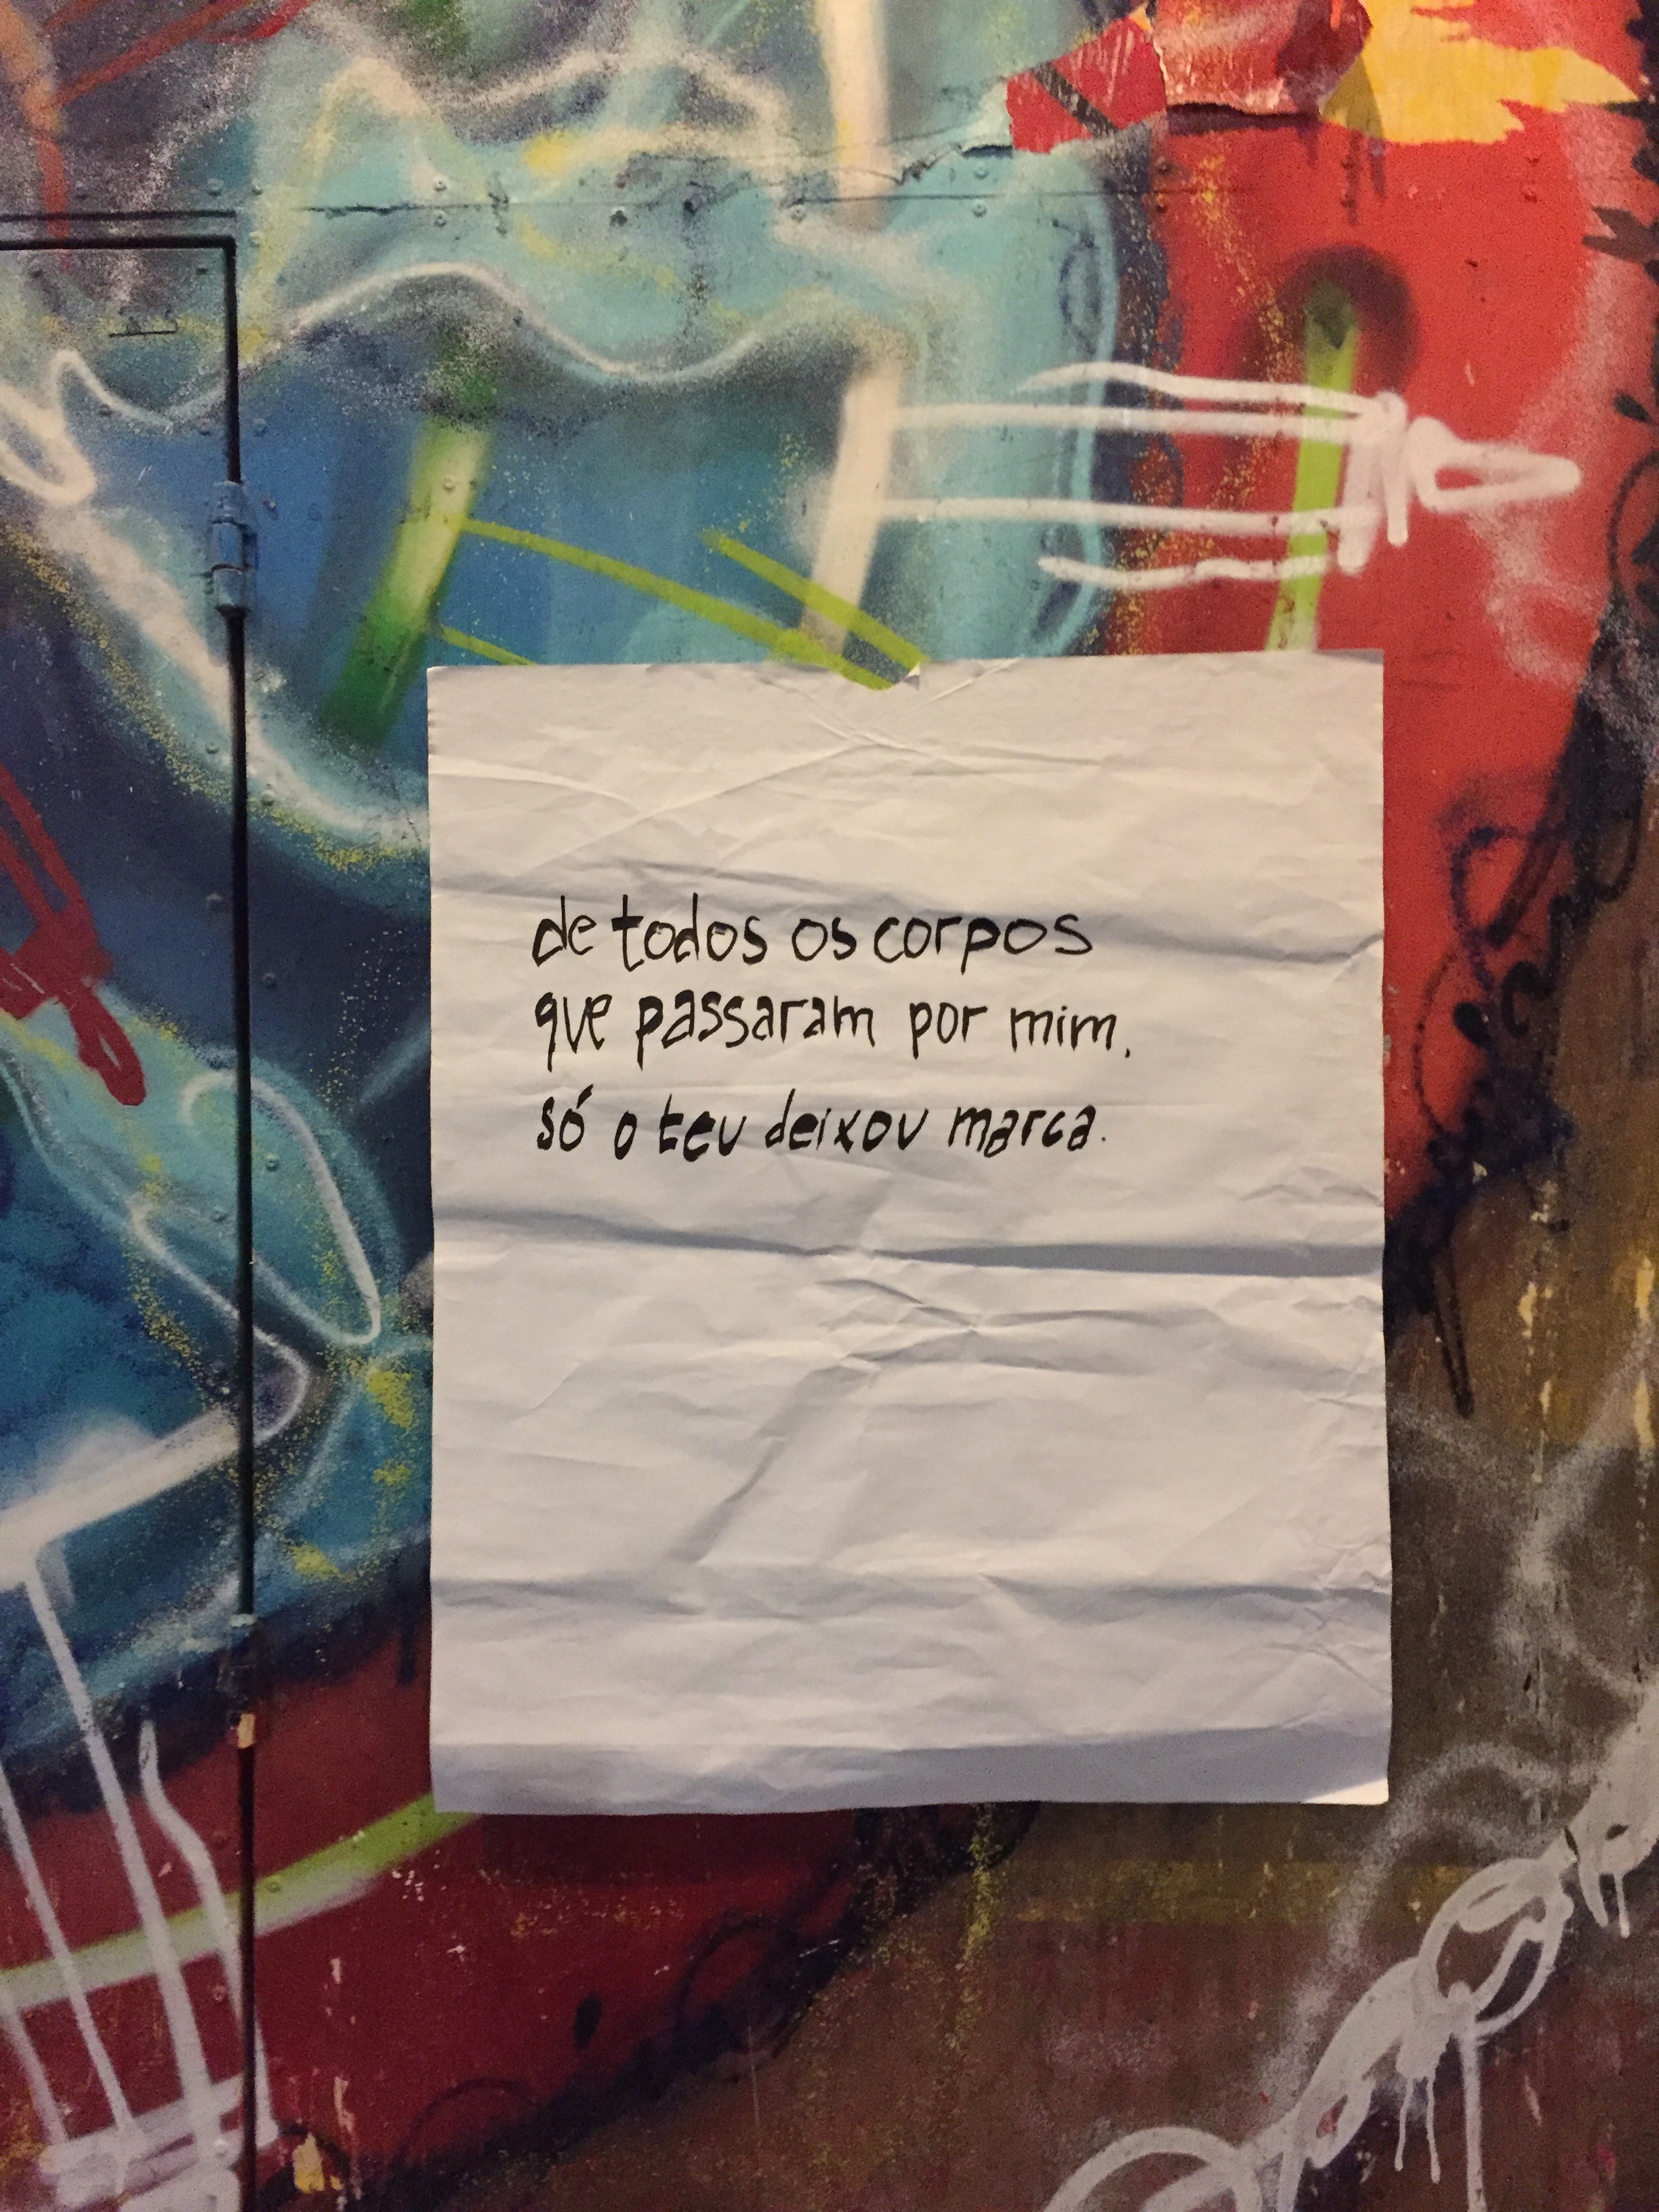 de todos os corpos
que passaram por mim,
só o teu deixou marca.